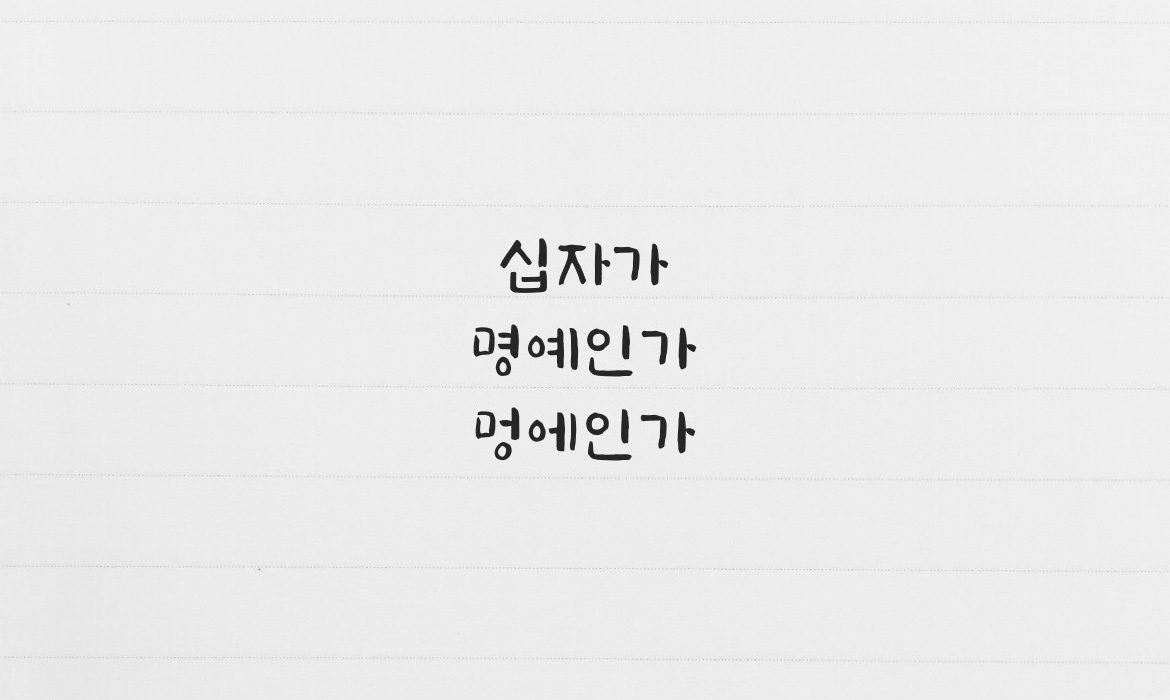 십자가
명예인가
멍에인가